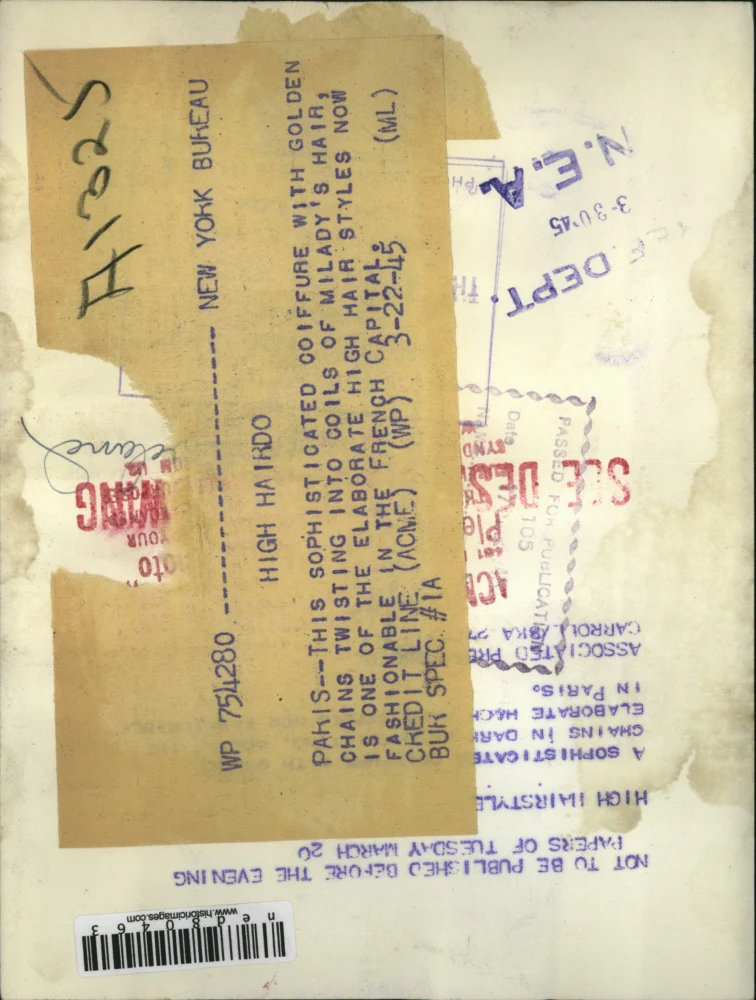 A1325
WP 754280 ------------------- NEW YORK BUREAU
HIGH HAIRDO
PARIS--THIS SOPHISTICATED COIFFURE WITH GOLDEN
CHAINS TWISTING INTO COILS OF MILADY'S HAIR,
IS ONE OF THE ELABORATE HIGH HAIR STYLES NOW
FASHIONABLE IN THE FRENCH CAPITAL.
CREDIT LINE (ACME) (WP) 3-22-45 (ML)
BUR SPEC #1A
N.E.A.
3-30-45
REF. DEPT.
PASSED FOR PUBLICATION
Date
105
SEE DES
ASSOCIATED PRE
A SOPHISTICATE
CHAINS IN DARK
ELABORATE
IN PARIS.
HIGH HAIRSTYLE
NOT TO BE PUBLISHED BEFORE THE EVENING
PAPERS OF TUESDAY MARCH 20
www.historicimages.com
ned80463